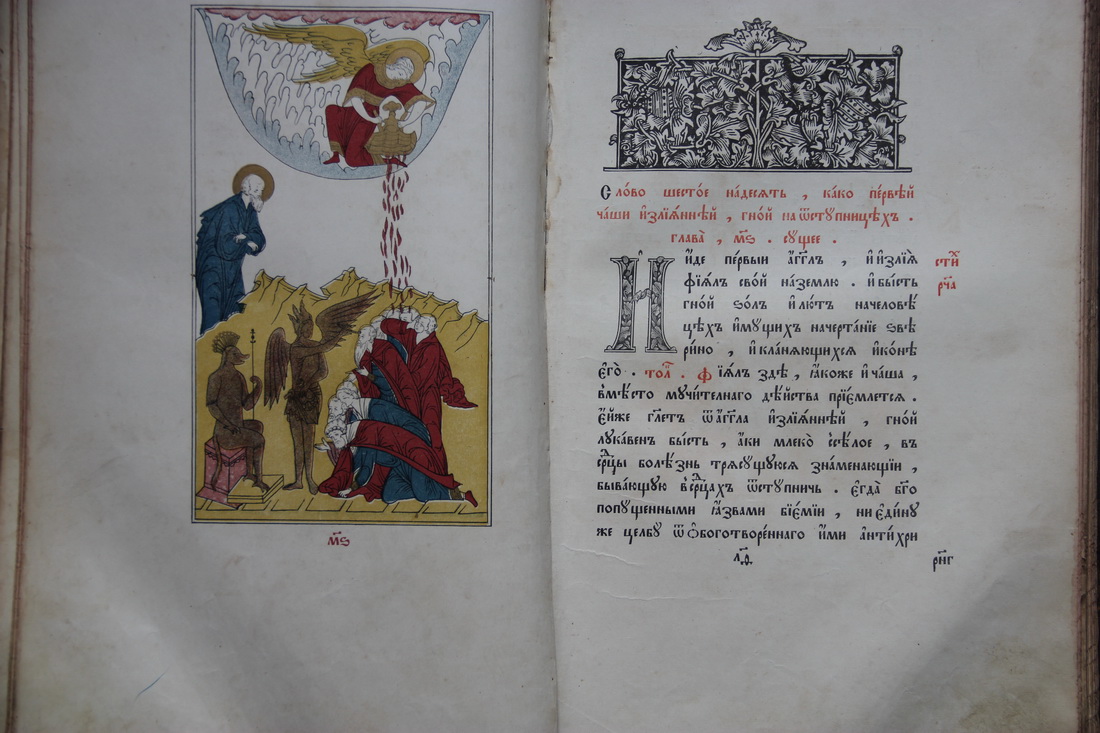 м҃ѕ
Сло́во шесто́е на́десять , ка́ко пе́рвѣй
ча́ши и҆злїѧ́ннѣй , гно́й на ѿстꙋ́пницѣхъ .
глава̀ , м҃ѕ . сꙋ́щее .
И҆и́де пе́рвыи а҆́гг҃лъ , и҆ и҆злїѧ̀
фїѧ́лъ сво́й на́ землю . и҆ бы́сть
гно́й ѕо́лъ и҆ лю́тъ на человѣ́
цѣхъ и҆мꙋ́щихъ начерта́нїе ѕвѣ
ри́но , и҆ кла́няющихся и҆ко́нѣ
є҆го̀ . то́л . Фїѧ́лъ здѣ̀ , ꙗ҆́коже и҆ ча́ша ,
вмѣ́сто мꙋчи́телнаго дѣ́йства прїе́млется .
є҆́йже гл҃етъ ѿ а҆́гг҃ла и҆злїѧ́ннѣй , гно́й
лꙋка́венъ бы́сть , а҆́ки млеко̀ ѡ҆сѣ́лое , въ
ср҃цы болѣ́знь трясꙋ́щꙋюся зна́менающїи ,
быва́ющꙋю в̾ ср҃ца́хъ ѿстꙋ́пничь . є҆гда̀ б҃го
попꙋ́щенными ꙗ҆́звами бїе́мїи , ни є҆ди́нꙋ
же целбꙋ̀ ѿ ѻ҆боготворе́ннаго и҆́ми а҆нти́хри
стїи
рч҃а
л҃д
рн҃г